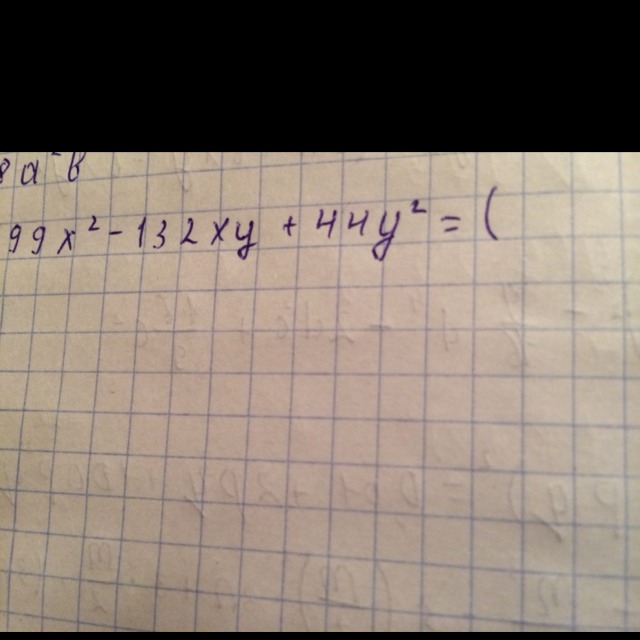 8a²b
99x² - 132xy + 44y² = (